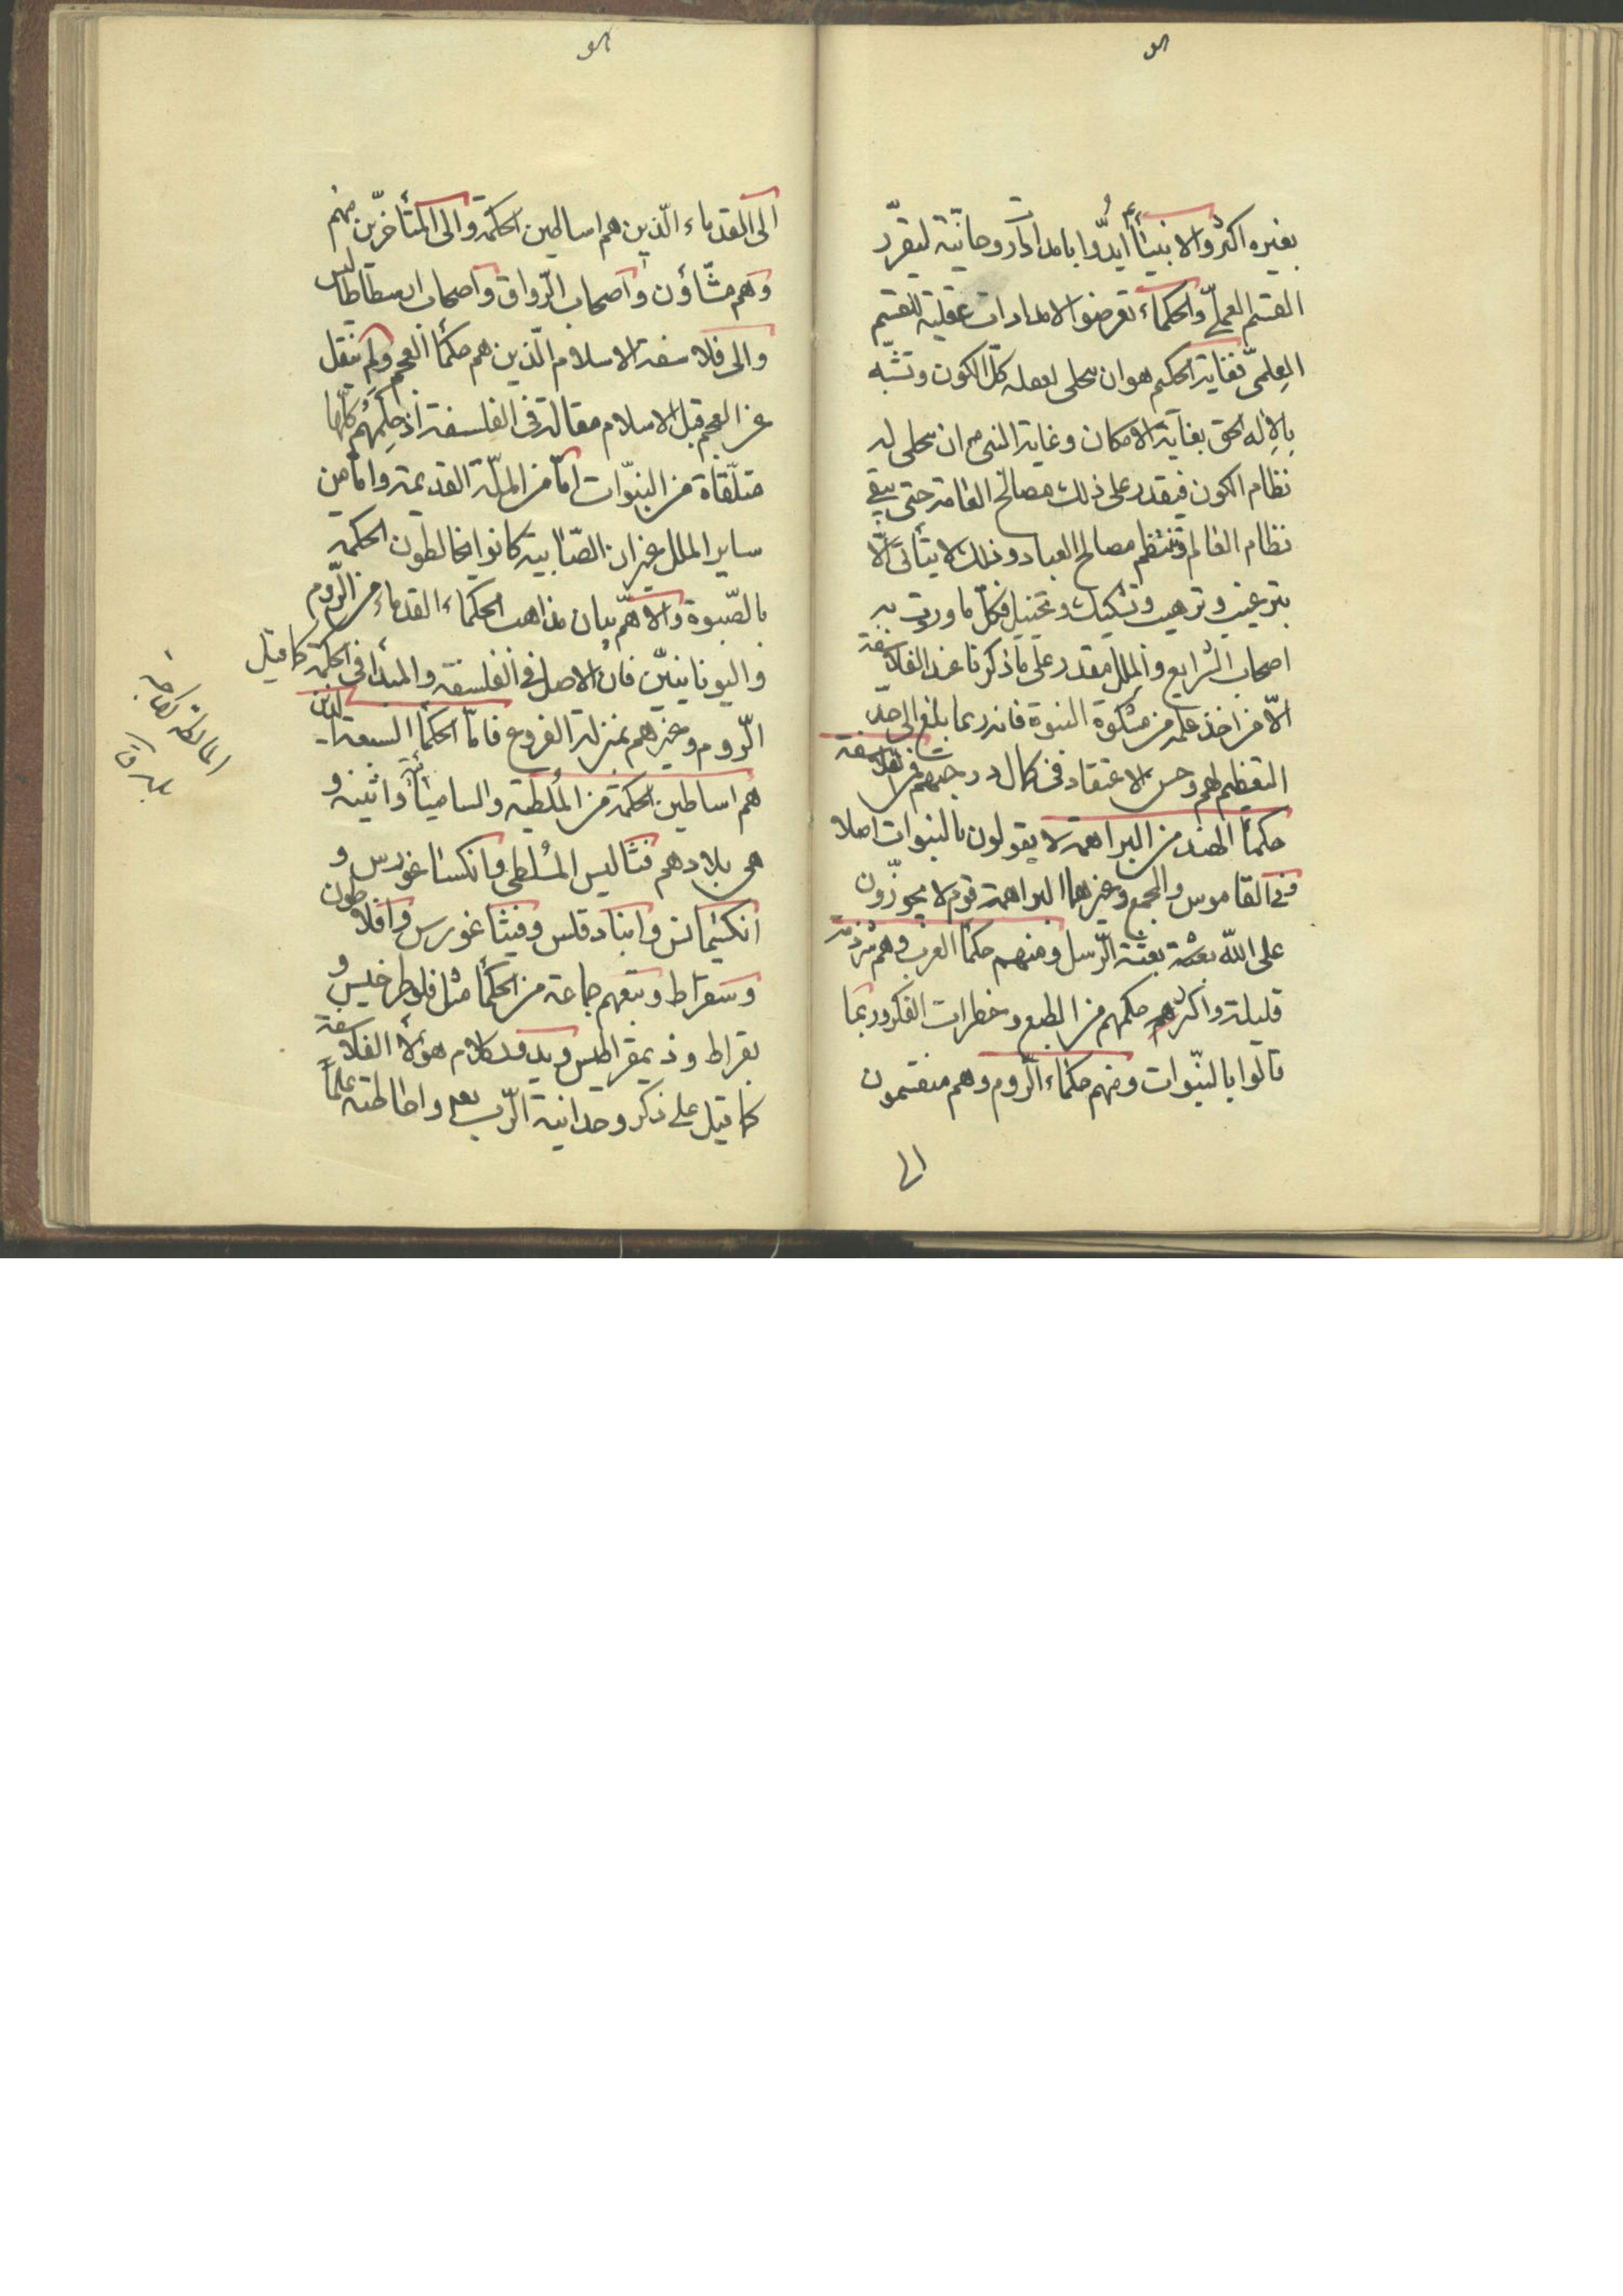 بغيره اكثر والانبيآء أيّدوا بامدادات روحانيّة ليقرّر
القسم العملىّ والحكماء تعرضوا لامدادات عقلية للقسم
العِلمىّ فغاية الحكيم هو ان يتحلى لعقله كلّ الكون وتشبّه
بالإله الحق بغاية الامكان وغاية النبى ان يتحلى له
نظام الكون فيقدر على ذلك مصالح العامة حتى يبقى
نظام العالم وتنتظم مصالح العباد وذلك لا يتأتى الّا
بترغيب وترهيب وتشكيك وتخييل فكلّ ما وردت به
اصحاب الشرايع والملل مقدر على ما ذكرنا عند الفلاسفة
الّا من اخذ علمه من مشكوة النبوة فانه ربما بلغ الى حدّ
التعظيم لهم وحسن الاعتقاد فى كمال درجتهم فمن الفلاسفة
حكمآ الهند من البراهمة لا يقولون بالنبوات اصلا
وفى القاموس والمجمع وغيرهما البراهمة قوم لا يجوّزون
على الله بعثة الرّسل ومنهم حكمآ العرب وهم شرذمة
قليلة واكثر حكمهم من الطبع وخطرات الفكر وربما
قالوا بالنبّوات ومنهم حكماء الرّوم وهم منقسمون
الى
الى القدماء الّذين هم اساطين الحكمة والى المتأخرّين منهم
وهم مشّاؤن واصحاب الرّواق واصحاب ارسطاطاليس
والى فلاسفة الاسلام الّذين هم حكمآ العجم ولم ينقل
عن العجم قبل الاسلام مقالة فى الفلسفة اذ حِكَمُهُم كلّها
متلّقاة من النبّوات امّا من الملّة القديمة وامّا من
ساير الملل غير ان الصّابية كانوا يخالطون الحكمة
بالصّبوة والاهمّ بيان مذاهب الحكماء القدماء من الرّوم
واليونانييّن فان الاصل فى الفلسفة والمبدأ فى الحكمة كما قيل
الرّوم وغيرهم بمنزلة الفروع فامّا الحكمآ السبعة الذين
هم اساطين الحكمة من المُلطية والساميا واثينه و
هى بلادهم فثاليس المُلطى وانكساغورس و
انكسيمانس وانبادقلس وفيثاغورس وافلاطون
وسقراط وتبعهم جماعة من الحكمآ مثل فلوطرخيس و
بقراط وذيمقراطيس ويدور كلام هؤلآء الفلاسفة
كما قيل على ذكر وحدانية الرّب تعالى واحاطته علماً